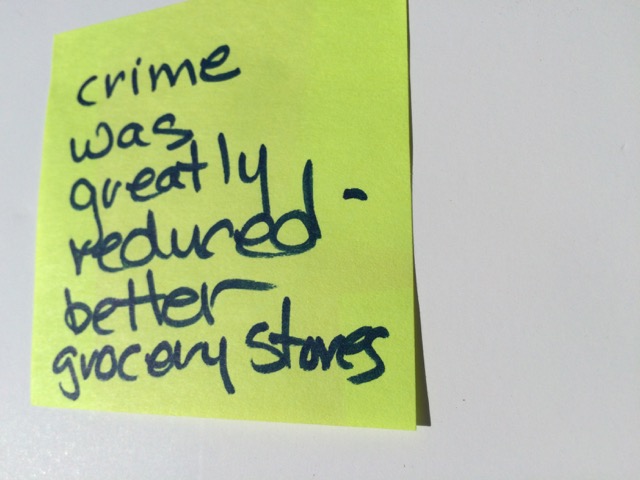 crime
was
greatly
reduced -
better
grocery stores